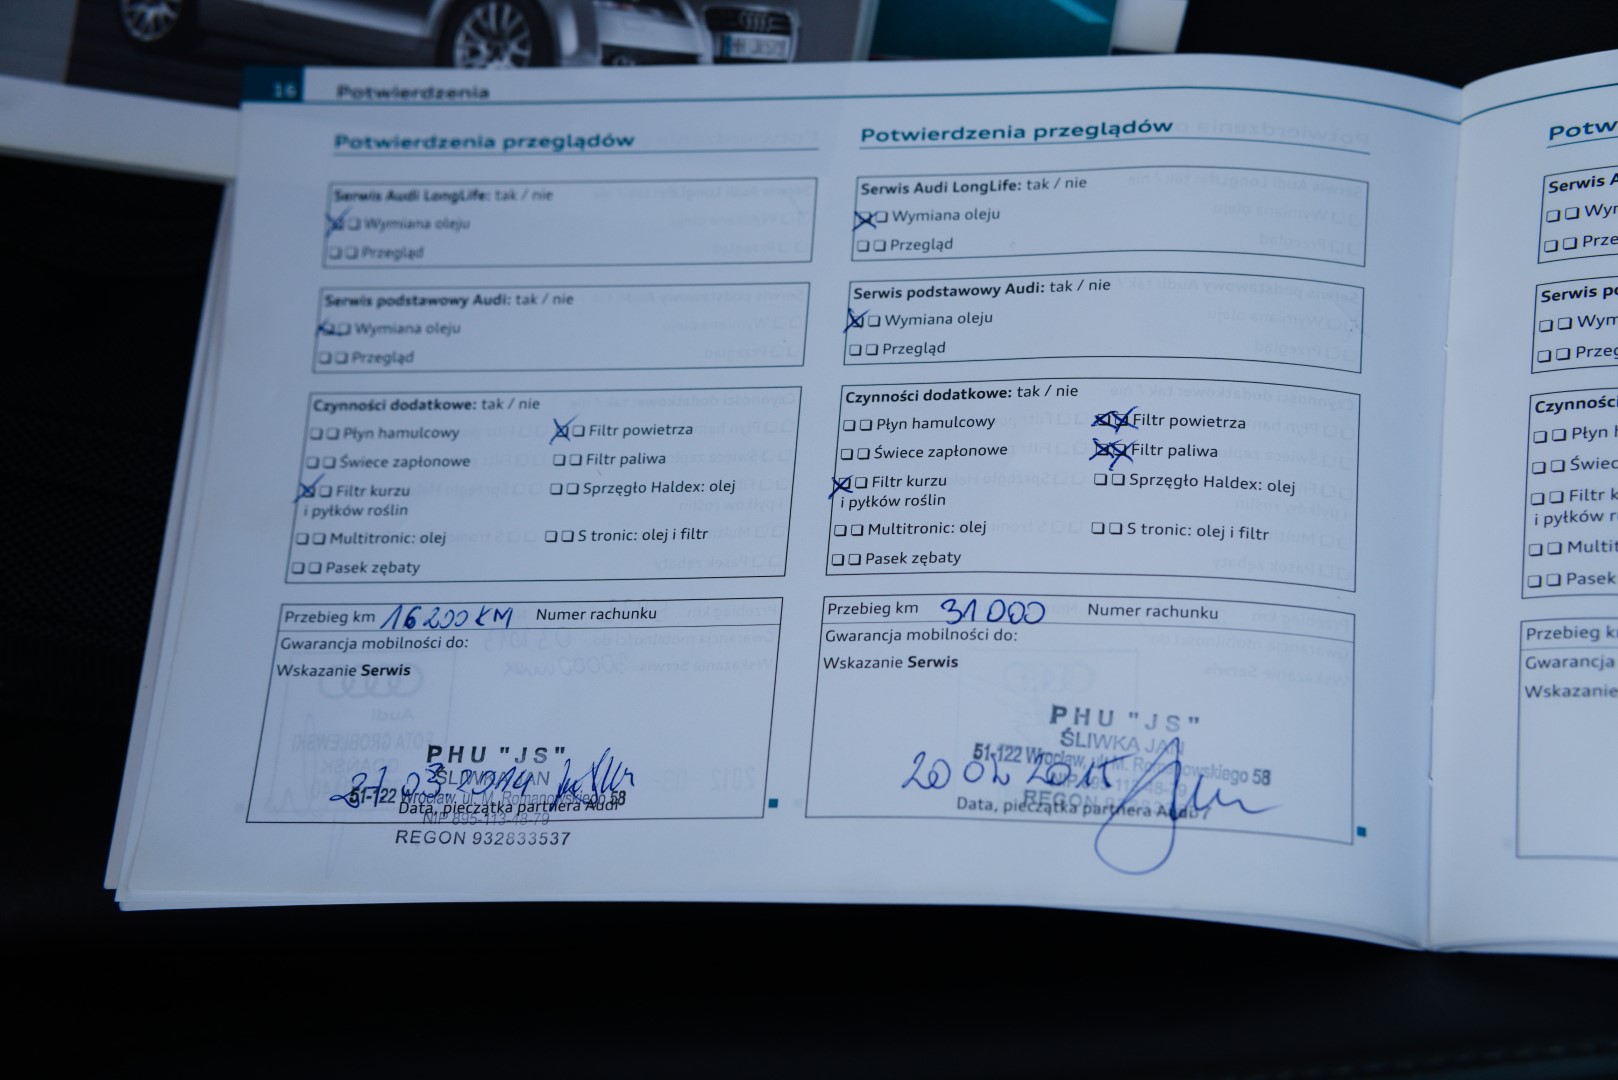 16 Potwierdzenia
Potwierdzenia przeglądów
Serwis Audi LongLife: tak / nie
Wymiana oleju
Przegląd
Serwis podstawowy Audi: tak / nie
Wymiana oleju
Przegląd
Czynności dodatkowe: tak / nie
Płyn hamulcowy Filtr powietrza
Świece zapłonowe Filtr paliwa
Filtr kurzu Sprzęgło Haldex: olej
i pyłków roślin
Multitronic: olej S tronic: olej i filtr
Pasek zębaty
Przebieg km 16 200 KM Numer rachunku
Gwarancja mobilności do:
Wskazanie Serwis
PHU "JS"
ŚLIWKA JAN
03 2014
51-122 Wrocław, ul. M. Romanowskiego 58
Data, pieczątka partnera Audi
NIP 895-113-48-79
REGON 932833537
Potwierdzenia przeglądów
Serwis Audi LongLife: tak / nie
Wymiana oleju
Przegląd
Serwis podstawowy Audi: tak / nie
Wymiana oleju
Przegląd
Czynności dodatkowe: tak / nie
Płyn hamulcowy Filtr powietrza
Świece zapłonowe Filtr paliwa
Filtr kurzu Sprzęgło Haldex: olej
i pyłków roślin
Multitronic: olej S tronic: olej i filtr
Pasek zębaty
Przebieg km 31 000 Numer rachunku
Gwarancja mobilności do:
Wskazanie Serwis
PHU "JS"
ŚLIWKA JAN
51-122 Wrocław, ul. M. Romanowskiego 58
20
NIP 895-113-48-79
REGON
Data, pieczątka partnera Audi
Potw
Serwis A
Wym
Prze
Serwis po
Wym
Przeg
Czynności
Płyn h
Świec
Filtr k
i pyłków r
Multit
Pasek
Przebieg k
Gwarancja
Wskazanie